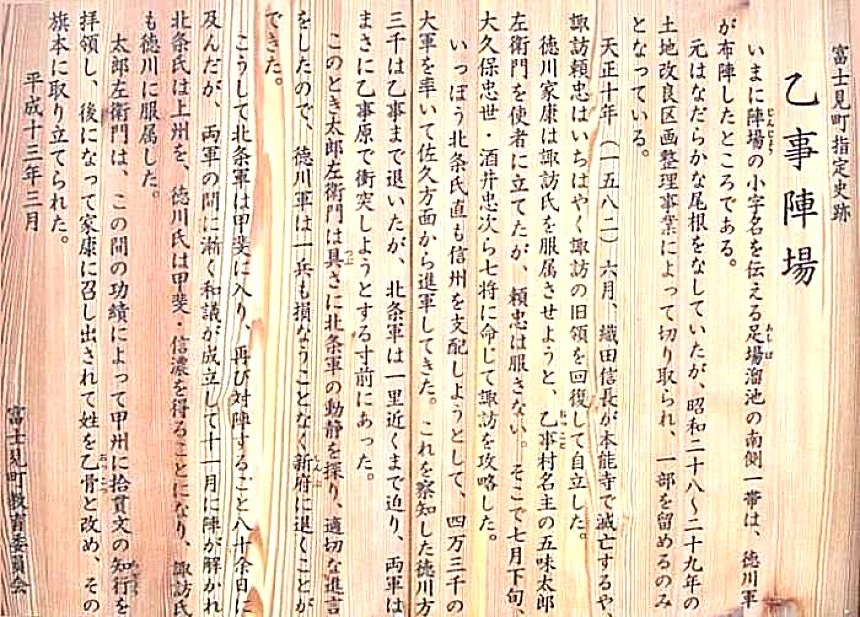 富士見町指定史跡
乙事陣場
いまに陣場の小字名を伝える足場溜池の南側一帯は、徳川軍
が布陣したところである。
元はなだらかな尾根をなしていたが、昭和二十八〜二十九年の
土地改良区画整理事業によって切り取られ、一部を留めるのみ
となっている。
天正十年（一五八二）六月、織田信長が本能寺で滅亡するや、
諏訪頼忠はいちはやく諏訪の旧領を回復して自立した。
徳川家康は諏訪氏を服属させようと、乙事村名主の五味太郎
左衛門を使者に立てたが、頼忠は服さない。そこで七月下旬、
大久保忠世・酒井忠次ら七将に命じて諏訪を攻略した。
いっぽう北条氏直も信州を支配しようとして、四万三千の
大軍を率いて佐久方面から進軍してきた。これを察知した徳川方
三千は乙事まで退いたが、北条軍は一里近くまで迫り、両軍は
まさに乙事原で衝突しようとする寸前にあった。
このとき太郎左衛門は具さに北条軍の動静を探り、適切な進言
をしたので、徳川軍は一兵も損なうことなく新府に退くことが
できた。
こうして北条軍は甲斐に入り、再び対陣すること八十余日に
及んだが、両軍の間に漸く和議が成立して十一月に陣が解かれ
北条氏は上州を、徳川氏は甲斐・信濃を得ることになり、諏訪氏
も徳川に服属した。
太郎左衛門は、この間の功績によって甲州に拾貫文の知行を
拝領し、後になって家康に召し出されて姓を乙骨と改め、その
旗本に取り立てられた。
平成十三年三月
富士見町教育委員会